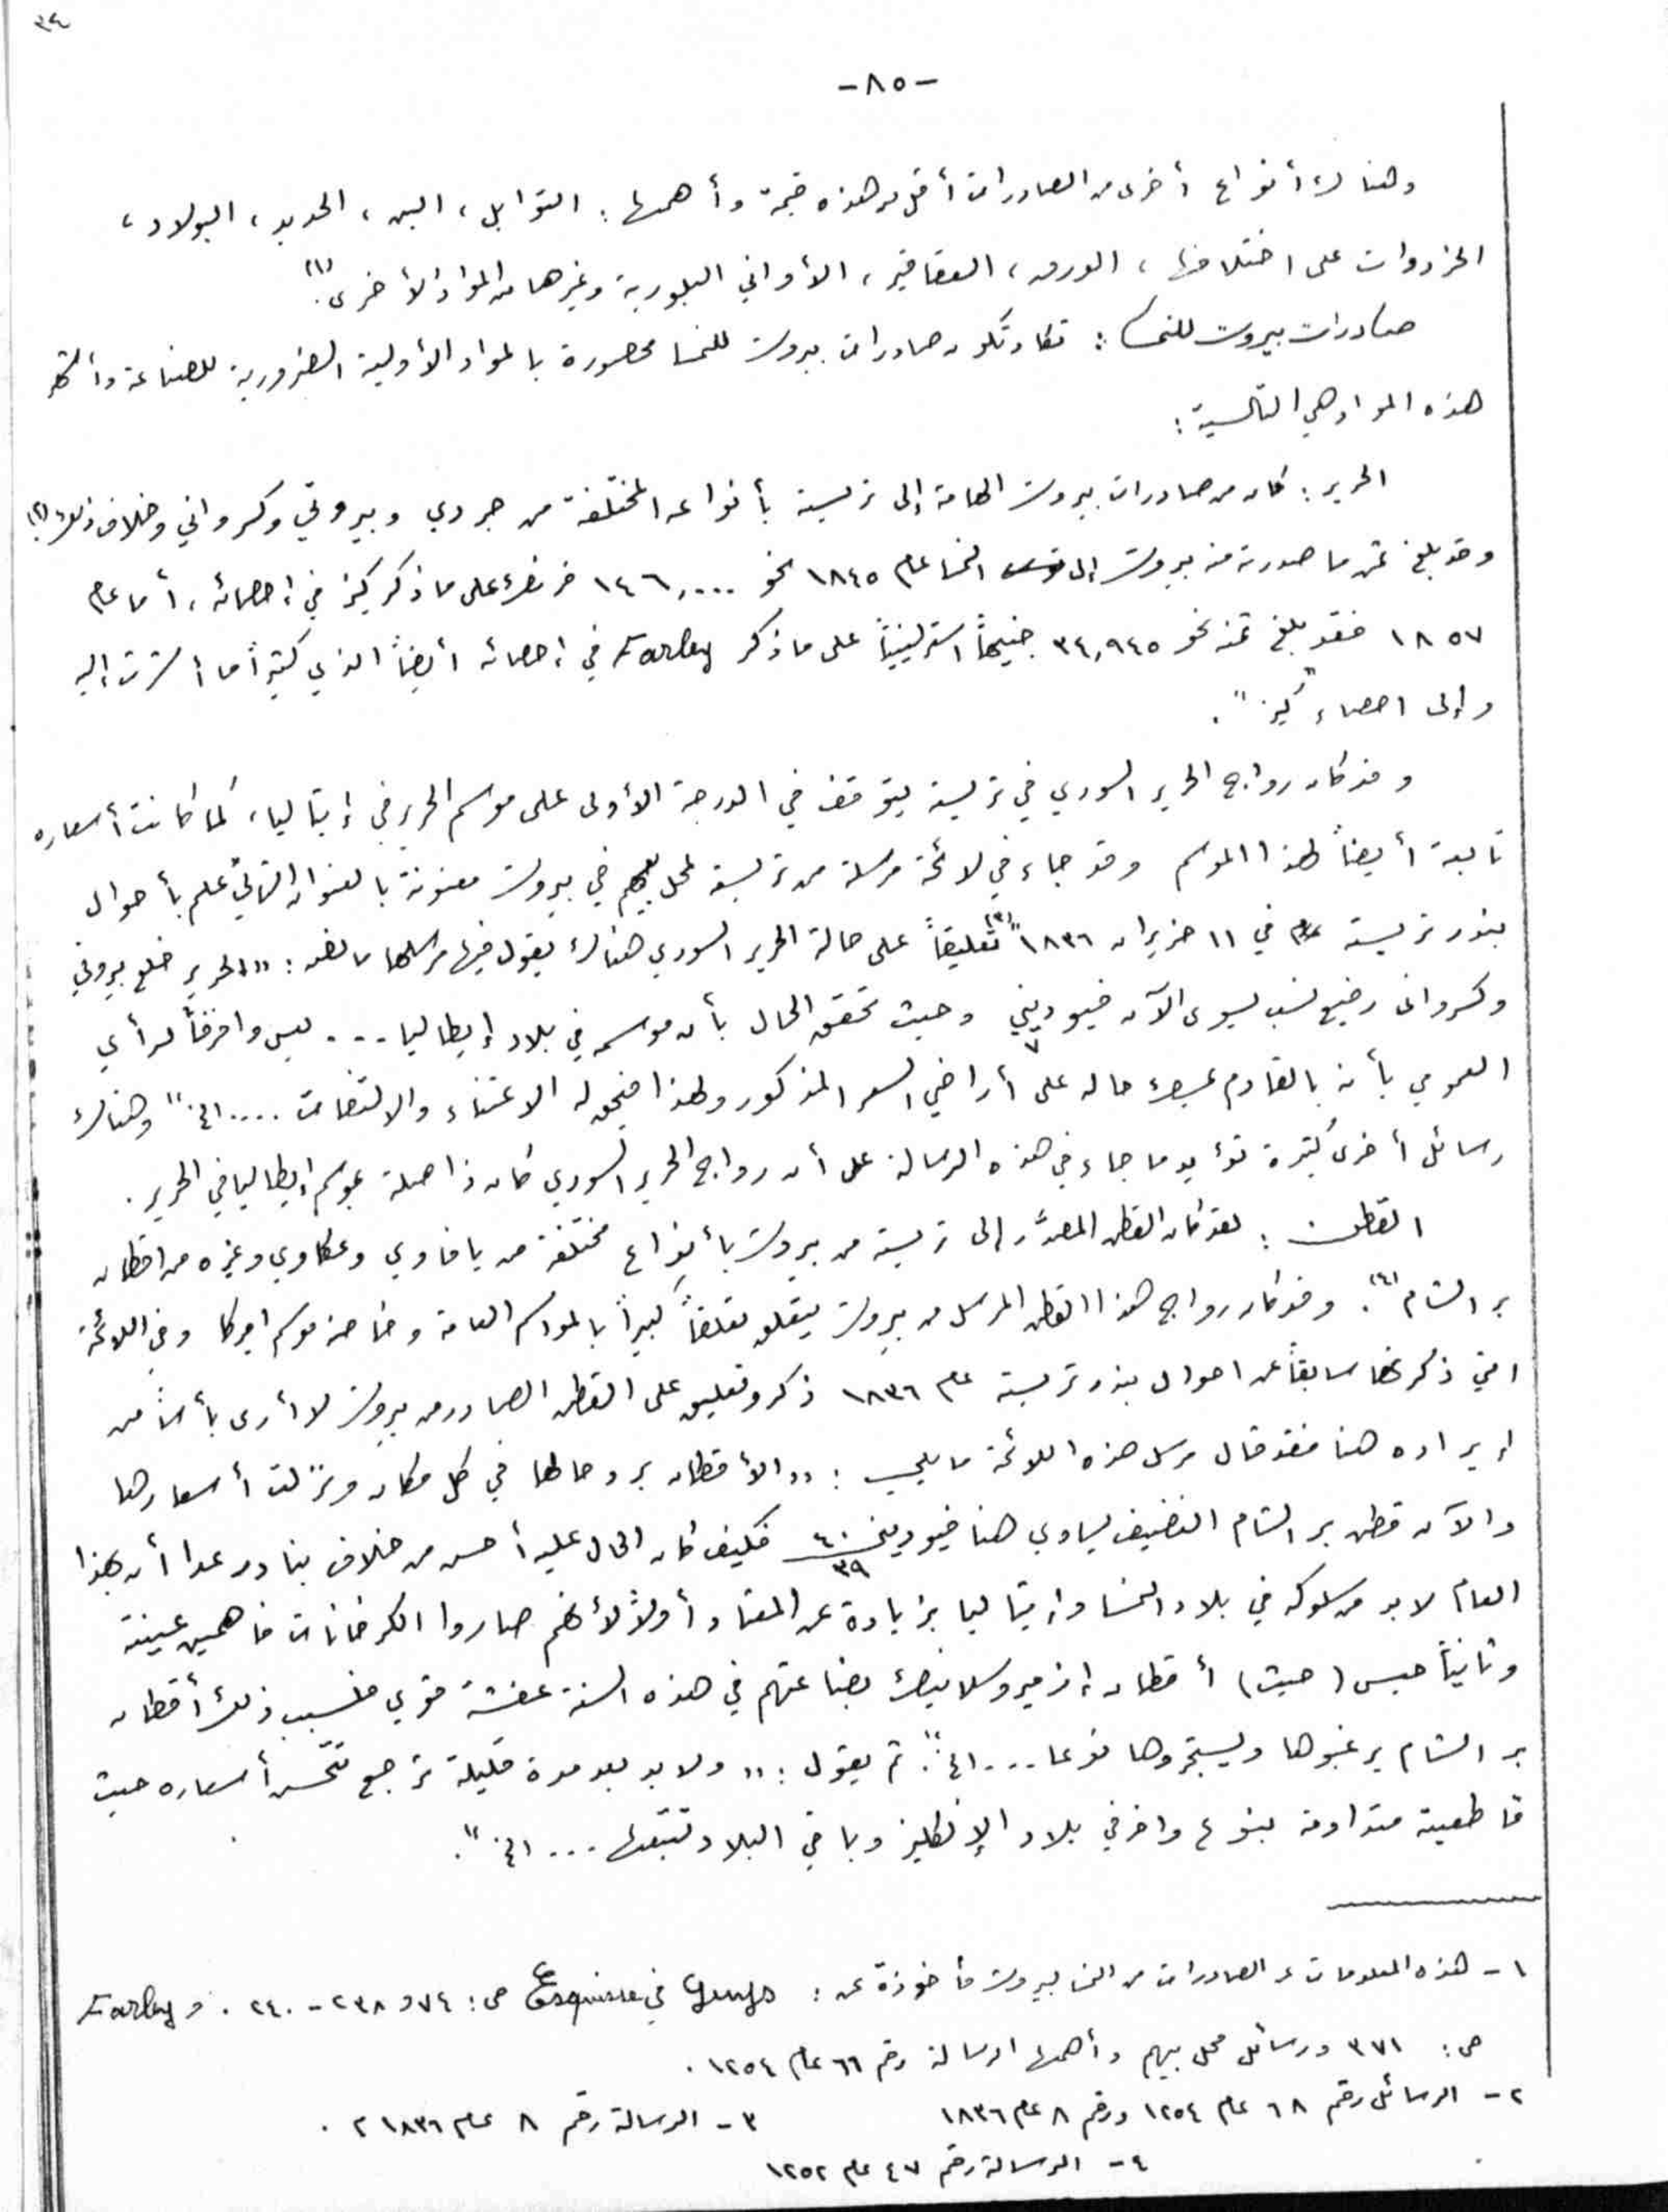 ٣٤
-٨٥-
وهناك أنواع أخرى من الصادرات أقل من هذه قيمة وأهمها: التوابل، البن، الحديد، البولاد،
الخردوات على اختلافها، الورق، العقاقير، الأواني البلورية وغيرها من المواد الأخرى(١).
صادرات بيروت للنمسا: تكاد تكون صادرات بيروت للنمسا محصورة بالمواد الأولية الضرورية للصناعة وأكثر
هذه المواد هي التالية:
الحرير: كان من صادرات بيروت الهامة إلى تريسته بأنواعه المختلفة من جردي وبيروتي وكسرواني وخلاف ذلك(٢).
وقد بلغ ثمن ما صدرته منه بيروت إلى النمسا عام ١٨٤٥ نحو ١٤٦,٠٠٠ فرنك على ما ذكر كيز في إحصائه، أما عام
١٨٥٧ فقد بلغ ثمنه نحو ٣٤,٩٤٥ جنيهاً استرلينياً على ما ذكر Farley في إحصائه أيضاً الذي كثيراً ما أشرت إليه
وإلى احصاء "كيز".
وقد كان رواج الحرير السوري في تريسته يتوقف في الدرجة الأولى على موسم الحرير في إيتاليا، كما كانت أسعاره
تابعة أيضاً لهذا الموسم وقد جاء في لائحة مرسلة من تريسته لمحل بيهم في بيروت معنونة بالعنوان التالي "علم بأحوال
بندر تريسته في ١١ حزيران ١٨٣٦"(٣) تعليقاً على حالة الحرير السوري هناك يقول فيها مرسلها ما نصه: "الحرير خلع بيروتي
وكسرواني رضيع نسب يسوى الآن فيوديني ٧ وحيث تحقق الحال بأن موسمه في بلاد إيطاليا ... ليس وافراً لرأي
العمومي بأنه بالقادم يمسك حاله على أراضي السعر المذكور ولهذا فيحق له الاعتناء والالتفات .... الخ" وهناك
رسائل أخرى كثيرة تؤيد ما جاء في هذه الرسالة على أن رواج الحرير السوري كان ذا صلة بموسم إيطاليا في الحرير.
القطن: لقد كان القطن المصدَّر إلى تريسته من بيروت بأنواع مختلفة من يافاوي وعكاوي وغيره من اقطان
بر الشام(٤). وقد كان رواج هذا القطن المرسل من بيروت يتعلق تعلقاً كبيراً بالمواسم العامة وخاصة موسم اميركا وفي اللائحة
التي ذكرتها سابقاً عن احوال بندر تريسته عام ١٨٣٦ ذكر وتعليق على القطن الصادر من بيروت لا أرى بأساً من
إيراده هنا فقد قال مرسل هذه اللائحة ما يلي: "الأقطان برد حالها في كل مكان ونزلت أسعارها
والآن قطن بر الشام النضيف يساوي هنا فيوديني ٤٠ ٣٩ فكيف كان الحال عليه أحسن من خلاف بنادر عدا أن بهذا
العام لابد من سلوكه في بلاد النمسا وايتاليا بزيادة عن المعتاد أولاً لأنهم صاروا الكرخانات
وثانياً حيس (حيث) أقطان إزمير وسلانيك بضاعتهم في هذه السنة عفشة قوي فلسبب ذلك أقطان
بر الشام يرغبوها ويستجروها نوعا ... الخ". ثم يقول: "ولابد بعد مدة قليلة ترجع تتحسن أسعاره حيث
قاطعية متداومة بنوع وافر في بلاد الإنكليز وباقي البلاد تتبعها ... الخ".
١- هذه المعلومات عن الصادرات من النمسا لبيروت مأخوذة عن: Guys في Esquisse ص: ٧٤ و ٢٣٨ - ٢٤٠. و Farley
ص: ٣٧١ ورسائل محل بيهم وأهمها الرسالة رقم ٦٦ عام ١٢٥٤.
٢- الرسائل رقم ٦٨ عام ١٢٥٤ ورقم ٨ عام ١٨٣٦
٣- الرسالة رقم ٨ عام ١٨٣٦ ٢.
٤- الرسالة رقم ٤٧ عام ١٢٥٢